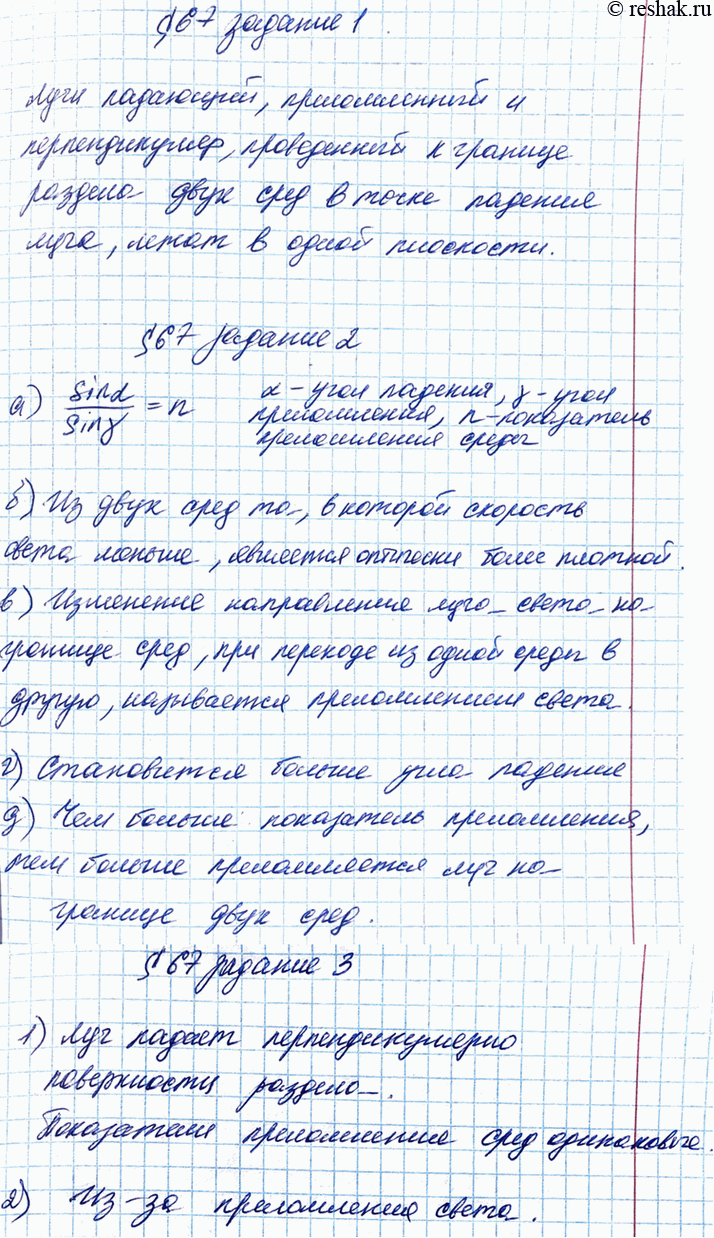 © reshak.ru
§67 задание 1
Лучи падающий, преломленный и
перпендикуляр, проведенный к границе
раздела двух сред в точке падения
луча, лежат в одной плоскости.
§67 задание 2
а) sinα/sinγ = n α - угол падения, γ - угол
преломления, n - показатель
преломления среды
б) Из двух сред та, в которой скорость
света меньше, является оптически более плотной.
в) Изменение направления луча света на
границе сред, при переходе из одной среды в
другую, называется преломлением света.
г) Становится больше угла падения
д) Чем больше показатель преломления,
тем больше преломляется луч на
границе двух сред.
§67 задание 3
1) Луч падает перпендикулярно
поверхности раздела.
Показатели преломления сред одинаковые.
2) Из-за преломления света.